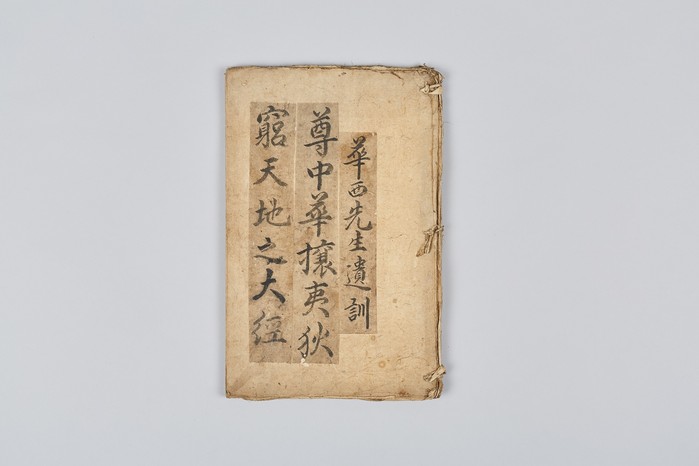 華西先生遺訓
尊中華攘夷狄
窮天地之大經